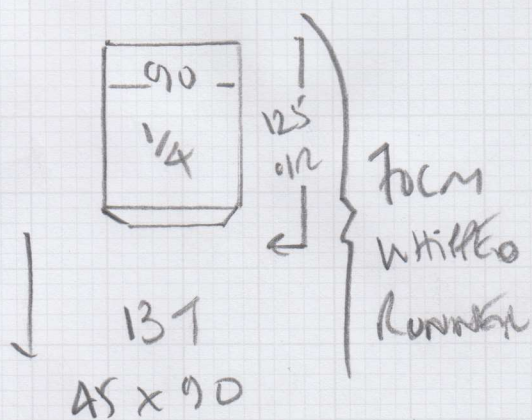 90
1/4
125
.12
70cm
WHIPPED
RUNNER
137
45 x 90